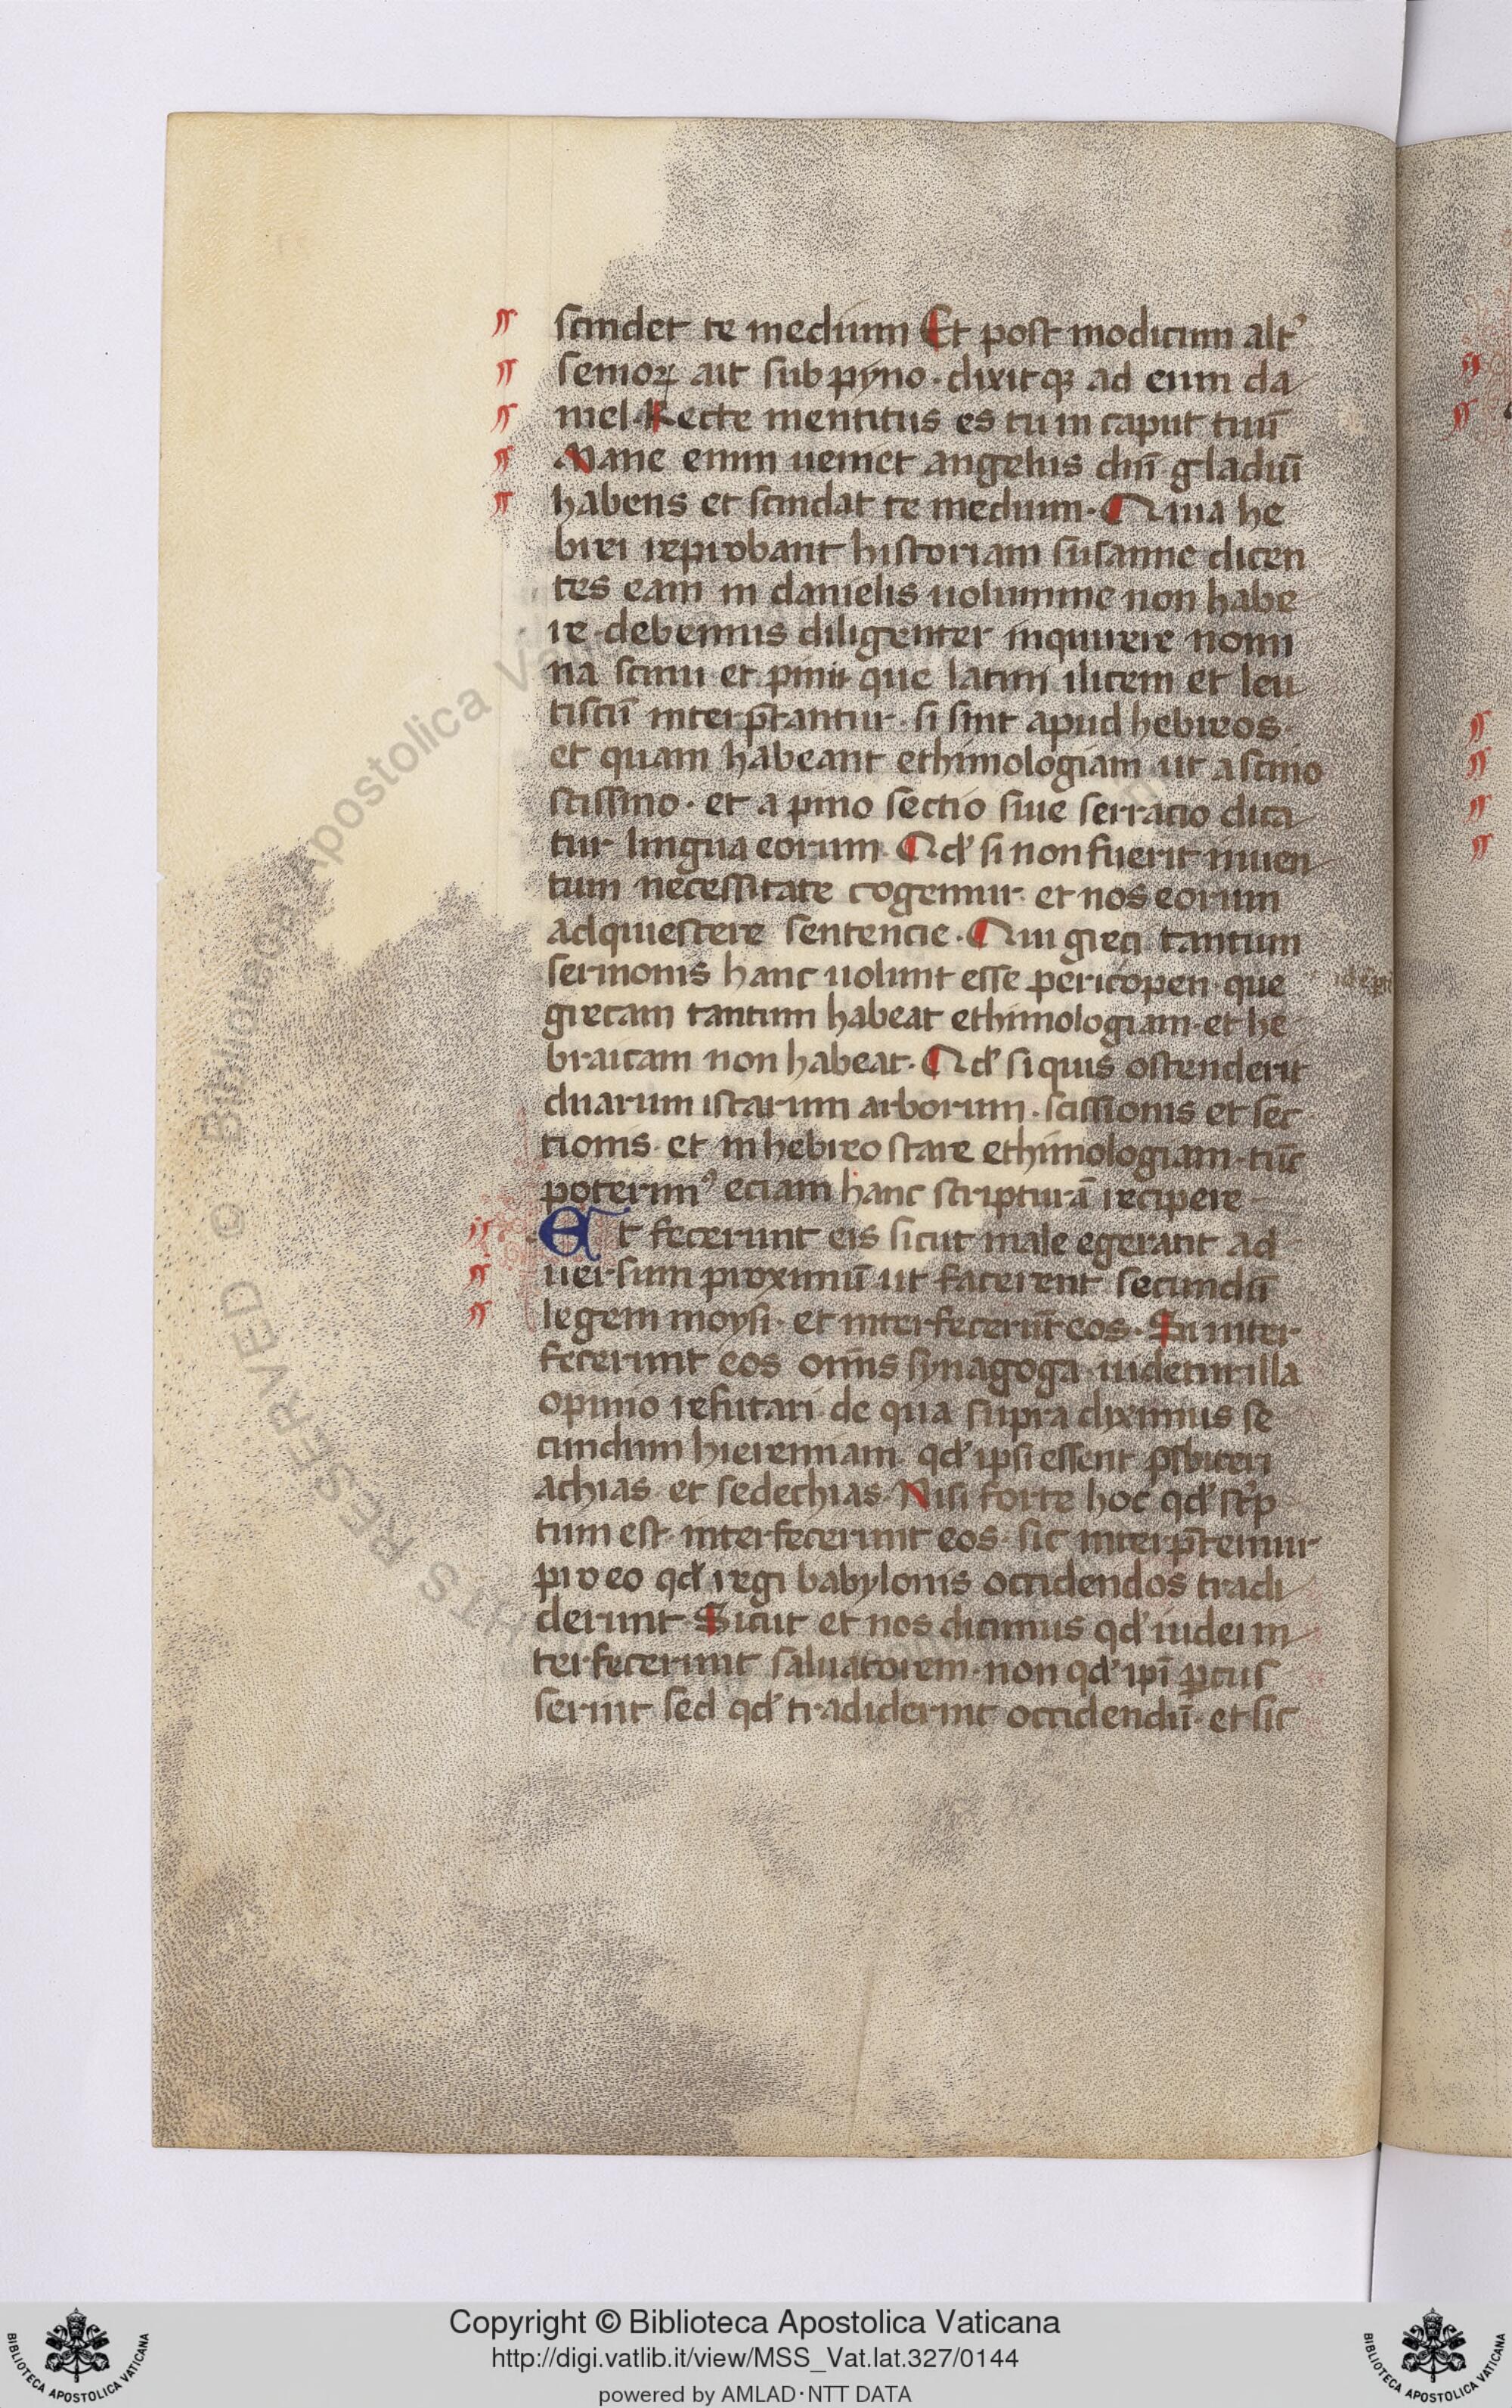 scindet te medium Et post modicum alt᾽
senioꝝ ait sub pyno · dixitqꝫ ad eum da
niel · Recte mentitus es tu in caput tuū
Mane enim ueniet angelus dnī gladiū
habens et scindat te medium · Quia he
brei reprobant historiam susanne dicen
tes eam in danielis uolumine non habe
re · debemus diligenter inquirere nomi
na scinu et pinu que latini ilicem et leu
tiscū interp̄tantur · si sint apud hebreos ·
et quam habeant ethimologiam ut a scino
scissino · et a pino sectio siue serratio dica
tur lingua eorum · Qđ si non fuerit inuen
tum necessitate cogemur et nos eorum
adquiescere sentencie · Qui greci tantum
sermonis hanc uolunt esse pericopen · que
grecam tantum habeat ethimologiam · et he
braicam non habeat · Qđ si quis ostenderit
duarum istarum arborum · scissionis et sec
tionis · et in hebreo stare ethimologiam · tūc
poterim᾽ eciam hanc scripturā recipere
Et fecerunt eis sicut male egerant ad
uersum proximū ut facerent secundū
legem moysi · et interfecerūt eos · Si inter
fecerunt eos om̄is synagoga · uidetur illa
opinio refutari · de qua supra diximus se
cundum hieremiam · qđ ipsi essent p̄sbiteri
achias et sedechias · Nisi forte hoc qđ sc̄p
tum est interfecerunt eos · sic interp̄temur
pro eo qđ regi babylonis occidendos tradi
derunt · Sicut et nos dicimus qđ iudei in
terfecerunt saluatorem · non qđ ipī ꝑcus
serint sed qđ tradiderint occidendū · et sic
RESERVED © Biblioteca Apostolica
Copyright © Biblioteca Apostolica Vaticana
http://digi.vatlib.it/view/MSS_Vat.lat.327/0144
powered by AMLAD·NTT DATA
BIBLIOTECA APOSTOLICA VATICANA
BIBLIOTECA APOSTOLICA VATICANA